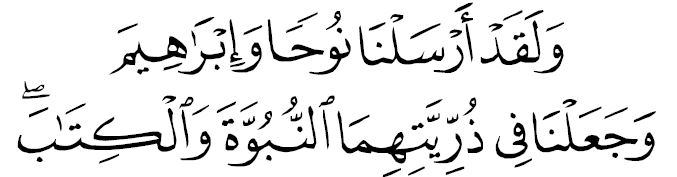 وَلَقَدْ أَرْسَلْنَا نُوحًا وَإِبْرَٰهِيمَ
وَجَعَلْنَا فِى ذُرِّيَّتِهِمَا ٱلنُّبُوَّةَ وَٱلْكِتَٰبَ ۖ